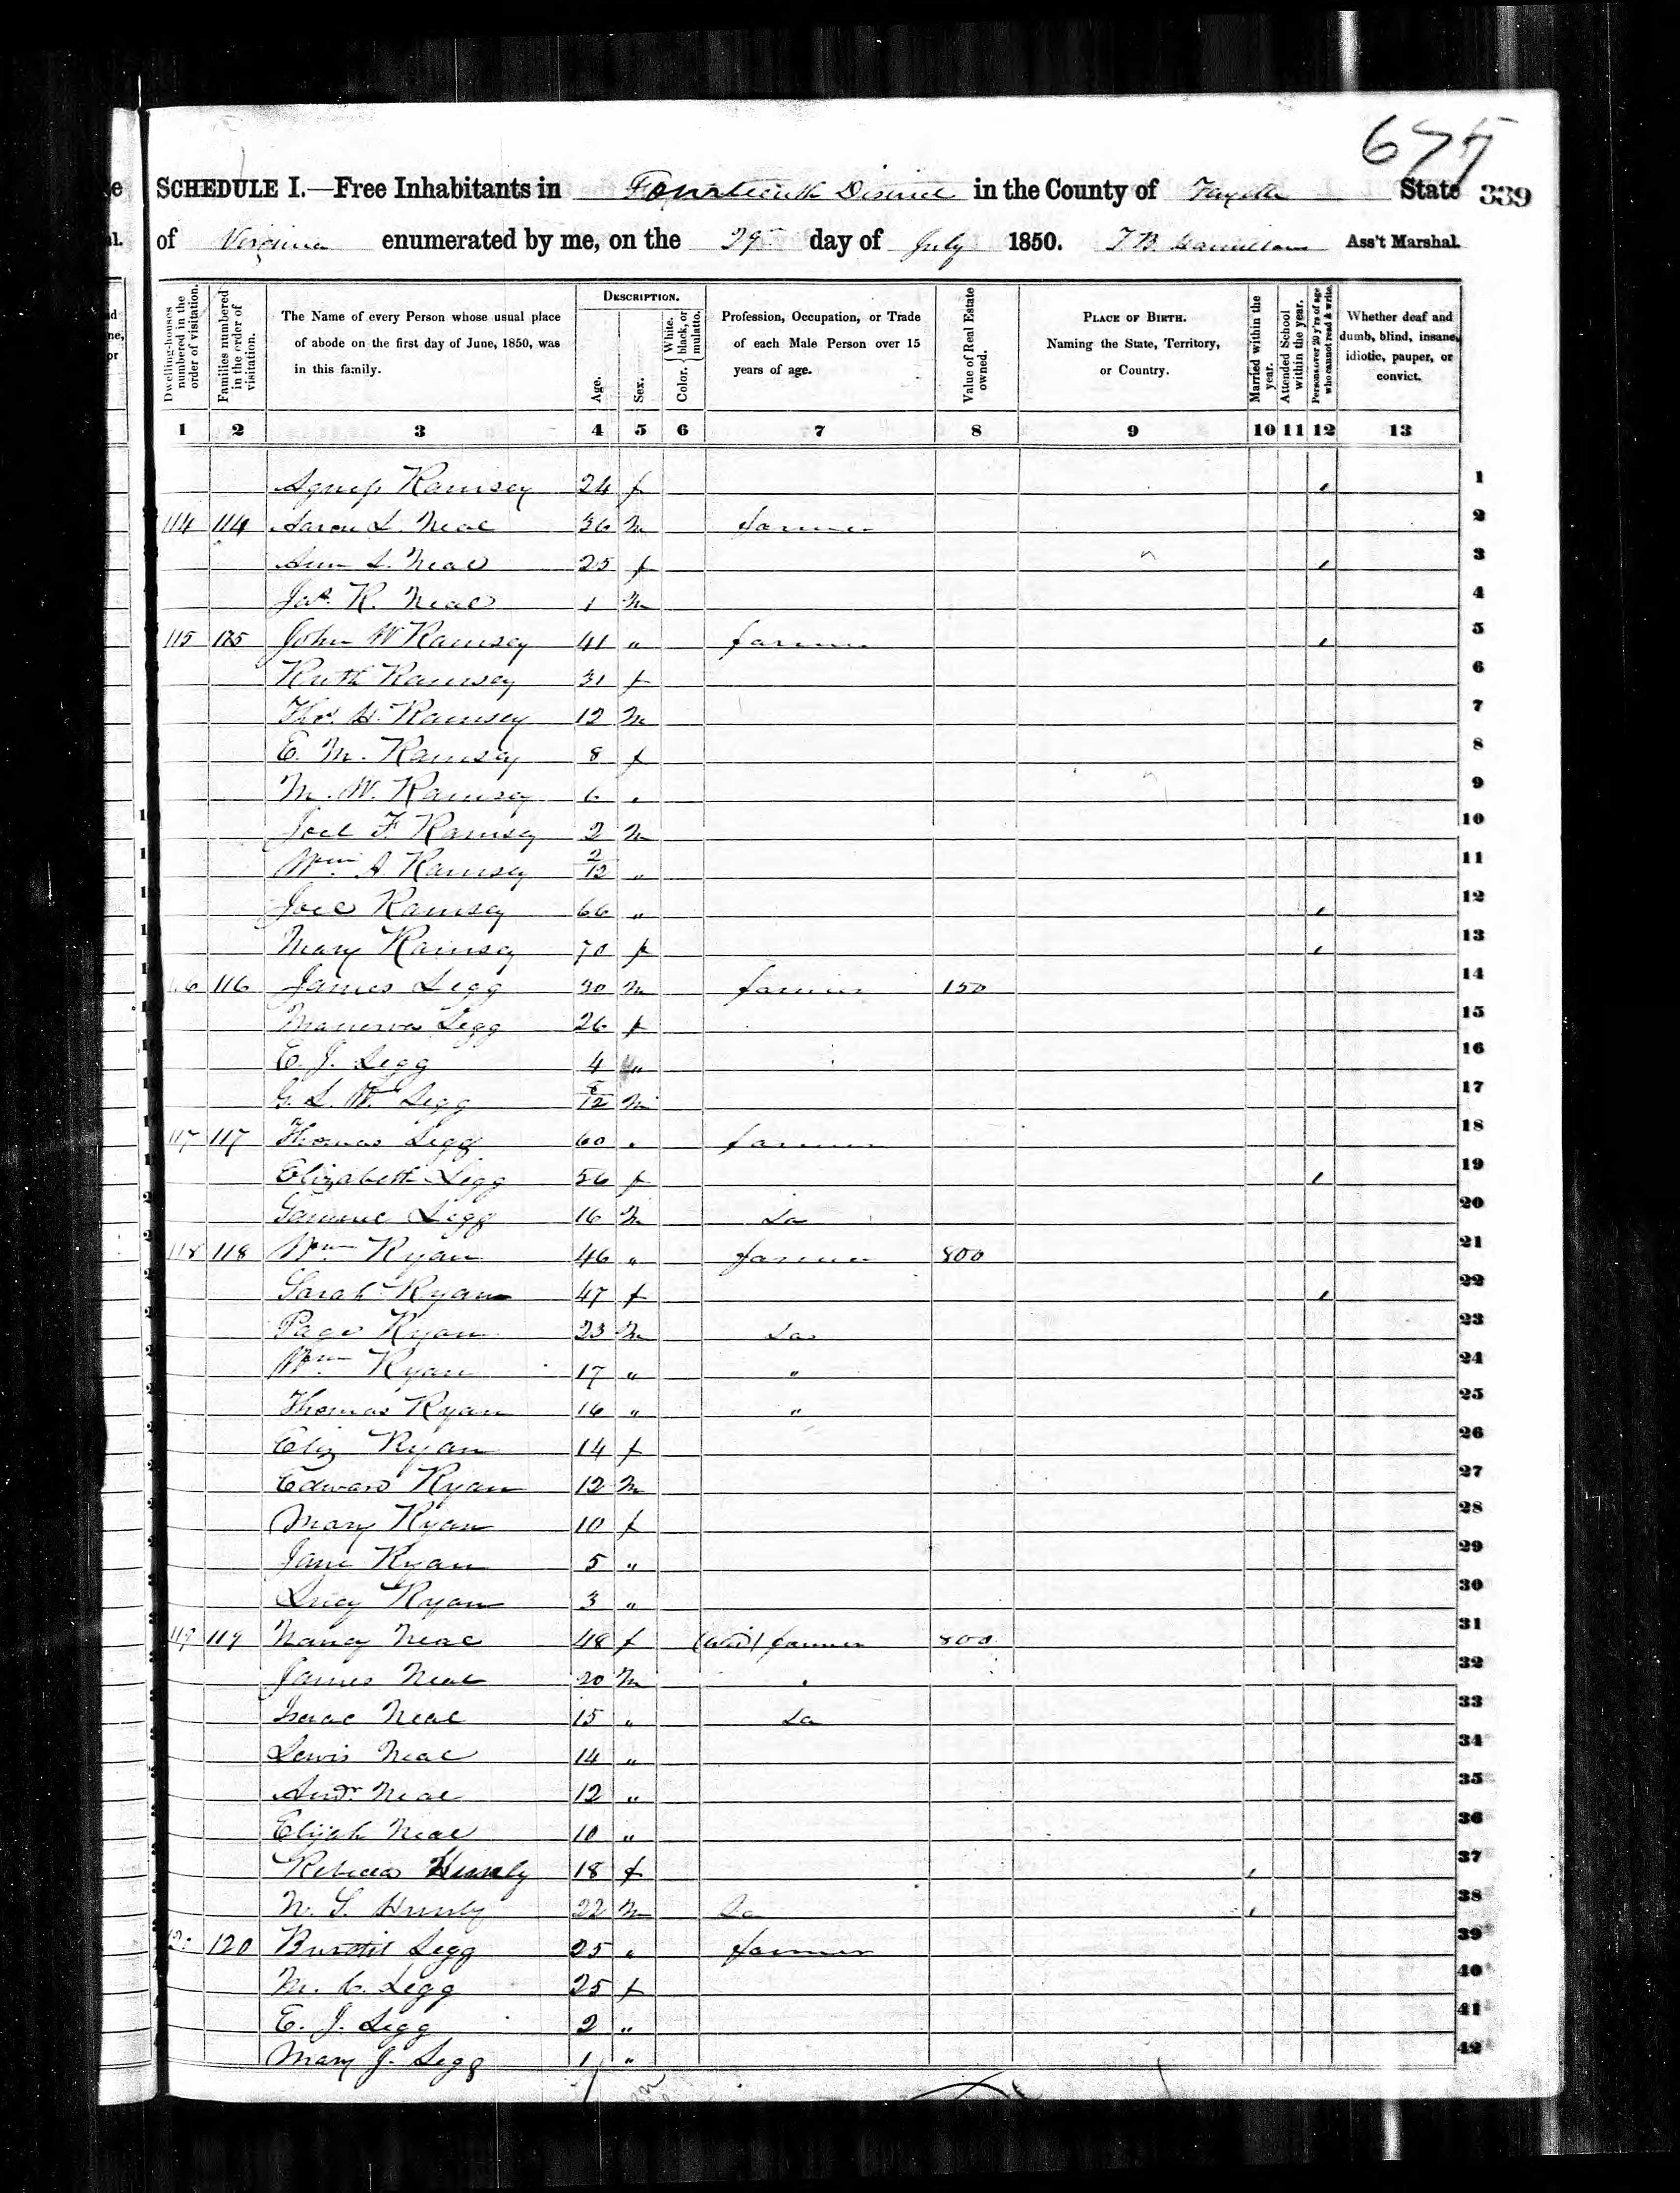 677
SCHEDULE I.—Free Inhabitants in Fourteenth District in the County of Fayette State 339
of Virginia enumerated by me, on the 29th day of July 1850. T. B. Hamilton Ass't Marshal.
Dwelling-houses numbered in the order of visitation. Families numbered in the order of visitation. The Name of every Person whose usual place of abode on the first day of June, 1850, was in this family. DESCRIPTION. Age. Sex. Color. { White, black, or mulatto. Profession, Occupation, or Trade of each Male Person over 15 years of age. Value of Real Estate owned. PLACE OF BIRTH. Naming the State, Territory, or Country. Married within the year. Attended School within the year. Persons over 20 y'rs of age who cannot read & write. Whether deaf and dumb, blind, insane, idiotic, pauper, or convict.
1 2 3 4 5 6 7 8 9 10 11 12 13
Agness Ramsey 24 f 1
114 114 Aaron L. Neal 36 M farmer 2
Ann L. Neal 25 f 3
Jas. R. Neal 1 M 4
115 115 John W Ramsey 41 " farmer 5
Ruth Ramsey 31 f 6
Thos. H. Ramsey 12 M 7
E. M. Ramsey 8 f 8
M. W. Ramsey 6 " 9
Joel F. Ramsey 2 M 10
Wm A Ramsey 2/12 " 11
Joel Ramsey 66 " 12
Mary Ramsey 70 f 13
116 116 James Legg 30 M farmer 150 14
Manerva Legg 26 f 15
E. J. Legg 4 " 16
G. L. W. Legg /12 M 17
117 117 Thomas Legg 60 " farmer 18
Elizabeth Legg 56 f 19
Legg 16 M Do 20
118 118 Wm Ryan 46 " farmer 800 21
Sarah Ryan 47 f 22
Page Ryan 23 M Do 23
Wm Ryan 17 " " 24
Thomas Ryan 16 " " 25
Eliz Ryan 14 f 26
Edward Ryan 12 M 27
Mary Ryan 10 f 28
Jane Ryan 5 " 29
Lucy Ryan 3 " 30
119 119 Nancy Neal 48 f (Wid) farmer 800 31
James Neal 20 M " 32
Isaac Neal 15 " Do 33
Lewis Neal 14 " 34
Andw. Neal 12 " 35
Elijah Neal 10 " 36
Rebecca 18 f 37
22 M Do 38
120 120 Legg 25 " farmer 39
M. C. Legg 25 f 40
E. J. Legg 2 " 41
Mary J. Legg 1 " 42